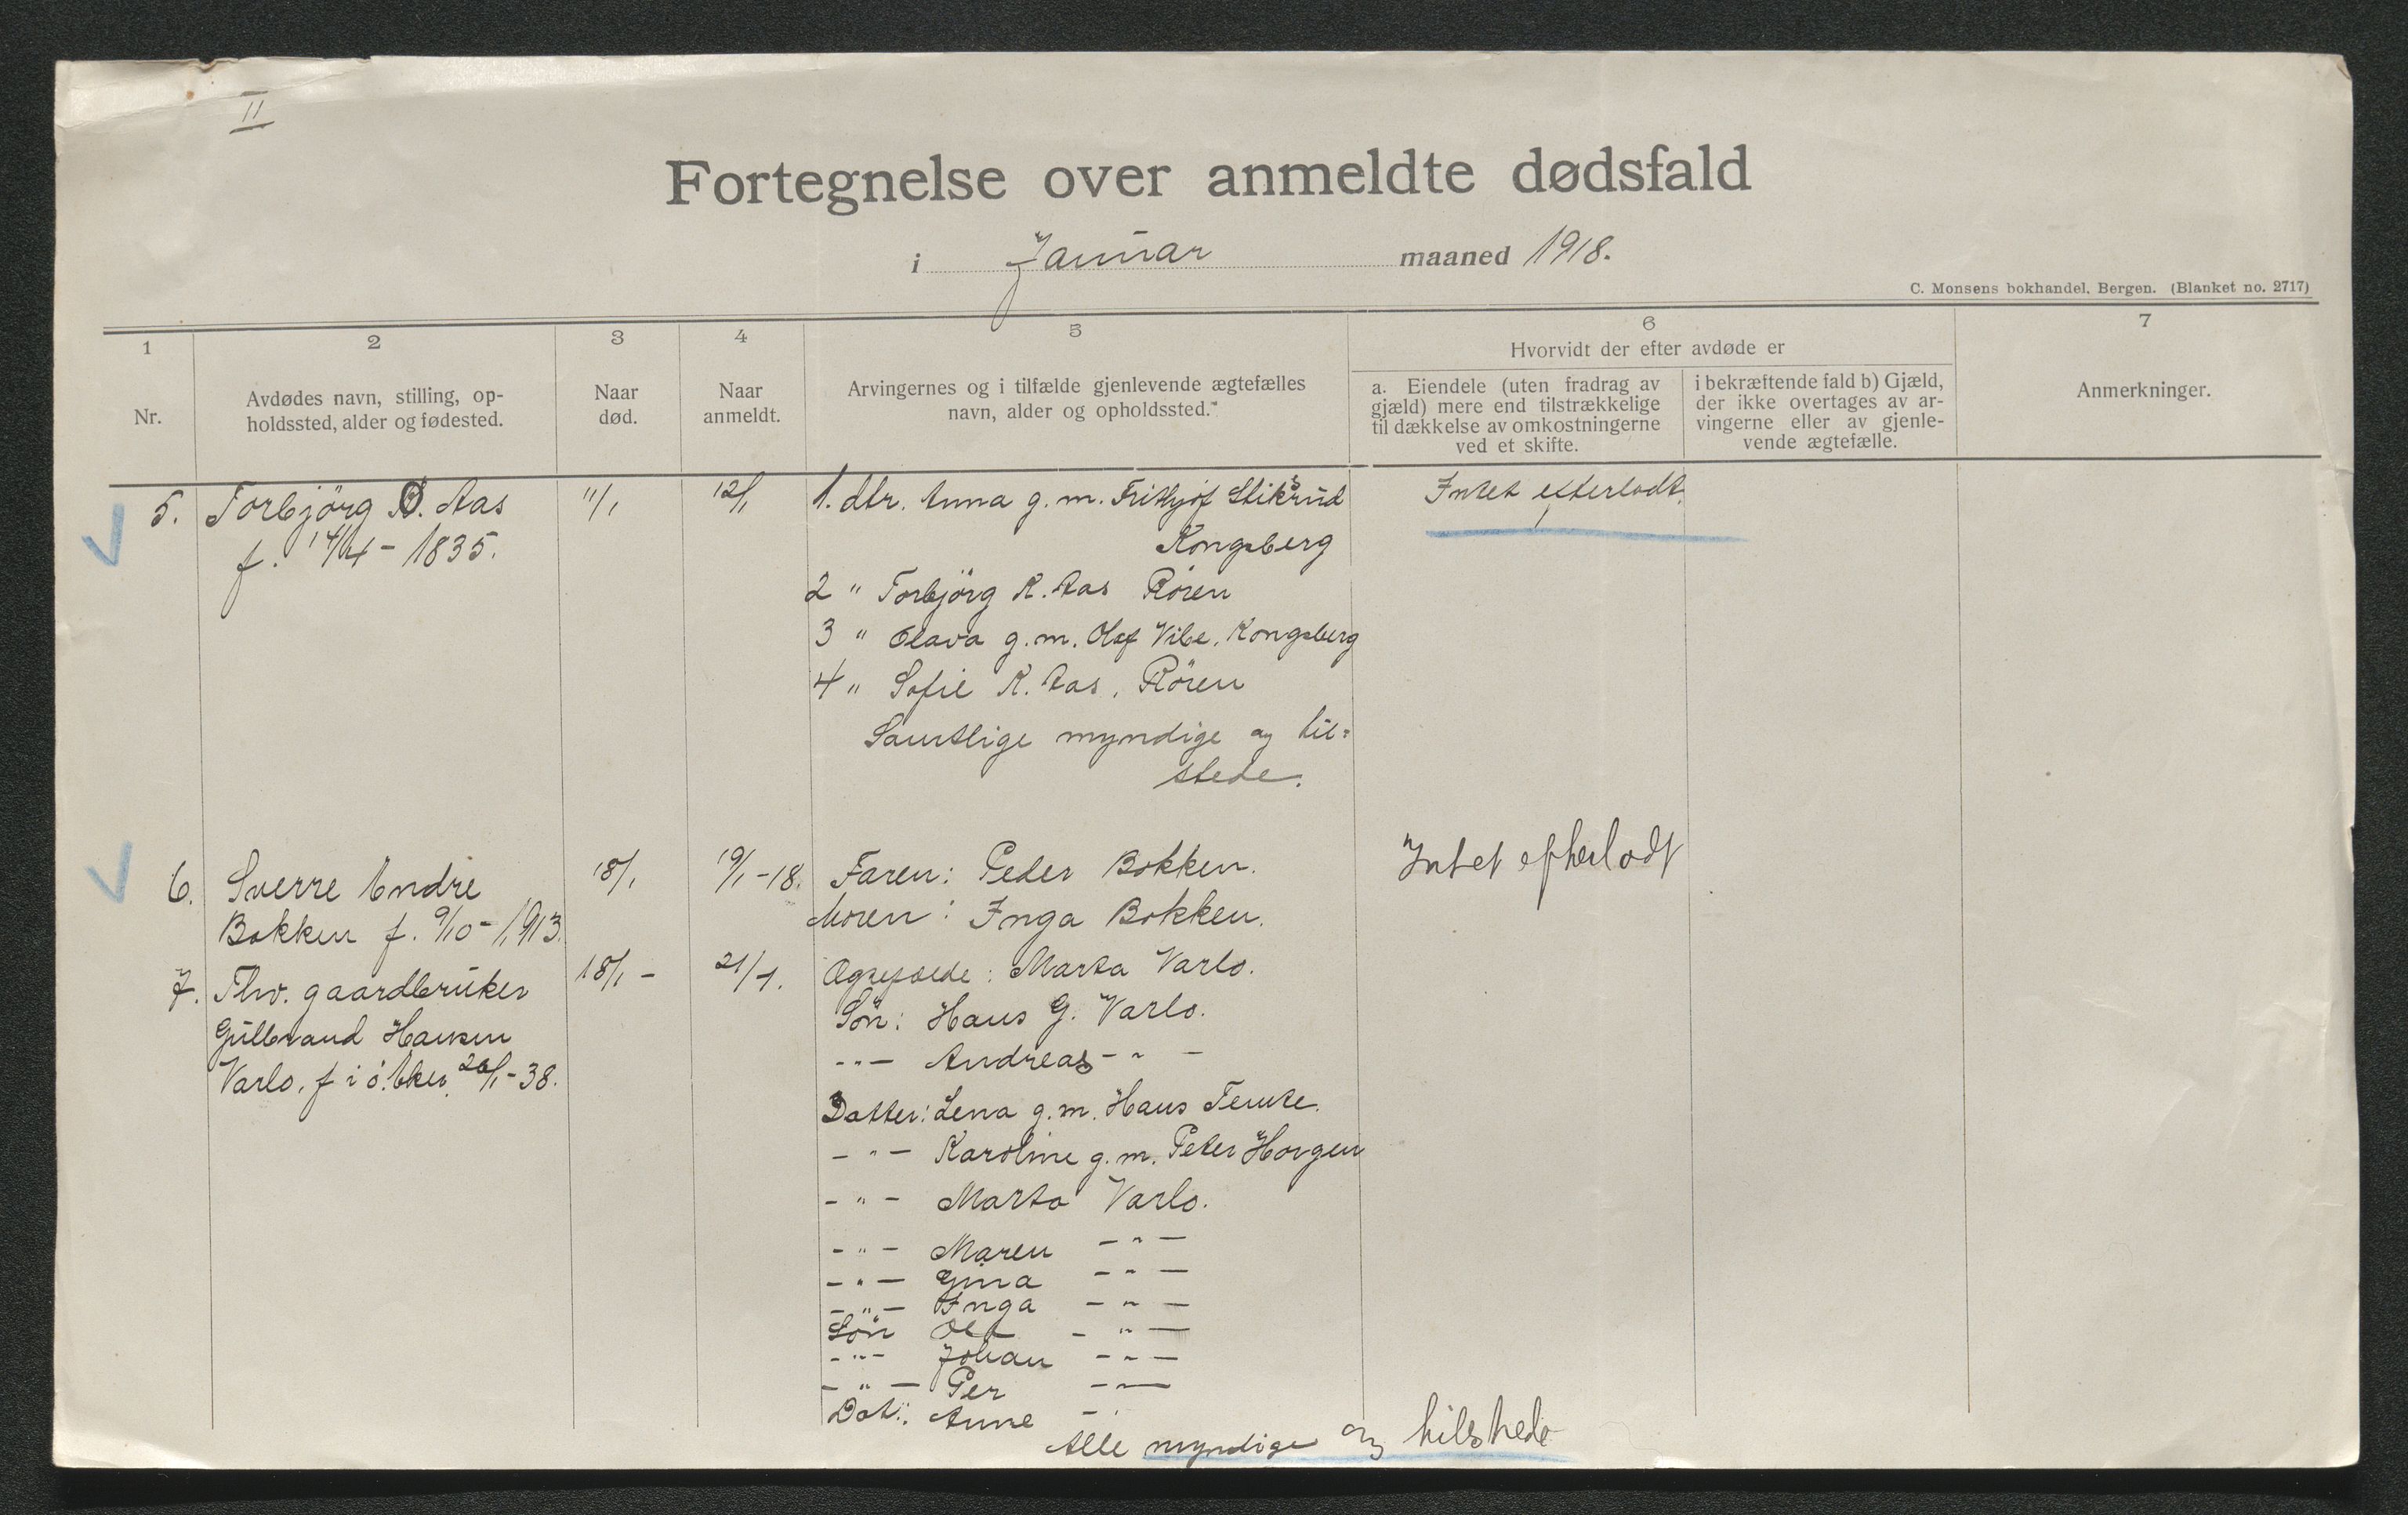 II
Fortegnelse over anmeldte dødsfald
i Januar maaned 1918.
C. Monsens bokhandel, Bergen. (Blanket no. 2717)
1
2
3
4
5
6
7
Nr.
Avdødes navn, stilling, op-
holdssted, alder og fødested.
Naar
død.
Naar
anmeldt.
Arvingernes og i tilfælde gjenlevende ægtefælles
navn, alder og opholdssted.*
Hvorvidt der efter avdøde er
a. Eiendele (uten fradrag av
gjæld) mere end tilstrækkelige
til dækkelse av omkostningerne
ved et skifte.
i bekræftende fald b) Gjæld,
der ikke overtages av ar-
vingerne eller av gjenle-
vende ægtefælle.
Anmerkninger.
5. Torbjörg O. Aas 11/1 12/1 1. dtr. Anna g. m. Frithjof Stiksrud Intet efterladt.
f. 14/4 - 1835. Kongsberg
2 " Torbjörg K. Aas Rören
3 " Olava g. m. Olaf Vibe, Kongsberg
4 " Sofie K. Aas, Rören
Samtlige myndige og til=
stede.
6. Sverre Endre 18/1 19/1-18. Faren: Peder Bokken. Intet efterladt
Bokken f. 9/10-1913. Moren: Inga Bokken.
7. Fhv. gaardbruker 18/1 - 21/1. Ægtefælle: Marta Varlo.
Gulbrand Hansen Sön: Hans G. Varlo.
Varlo, f i ö. Eker 26/1-38. -"- Andreas -"-
Datter: Lena g. m. Hans Temte.
-"- Karoline g. m. Peter Horgen
-"- Marta Varlo.
-"- Maren -"-
-"- Gina -"-
-"- Inga -"-
Sön Ole -"-
-"- Johan -"-
-"- Per -"-
Dat.: Anne -"
Alle myndige og tilstede